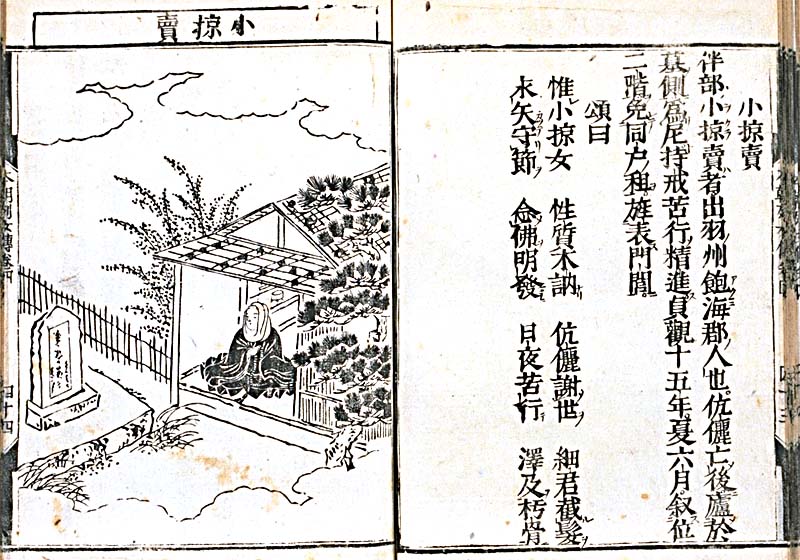 小掠賣
伴部小掠賣者出羽州飽海郡人也伉儷亡後廬於
墓側爲尼持戒苦行精進貞觀十五年夏六月叙位
二階免同戸租旌表門閭
頌曰
惟小掠女 性質木訥 伉儷謝世 細君截髮
永矢守節 念佛明發 日夜苦行 澤及朽骨
小掠賣
四十四